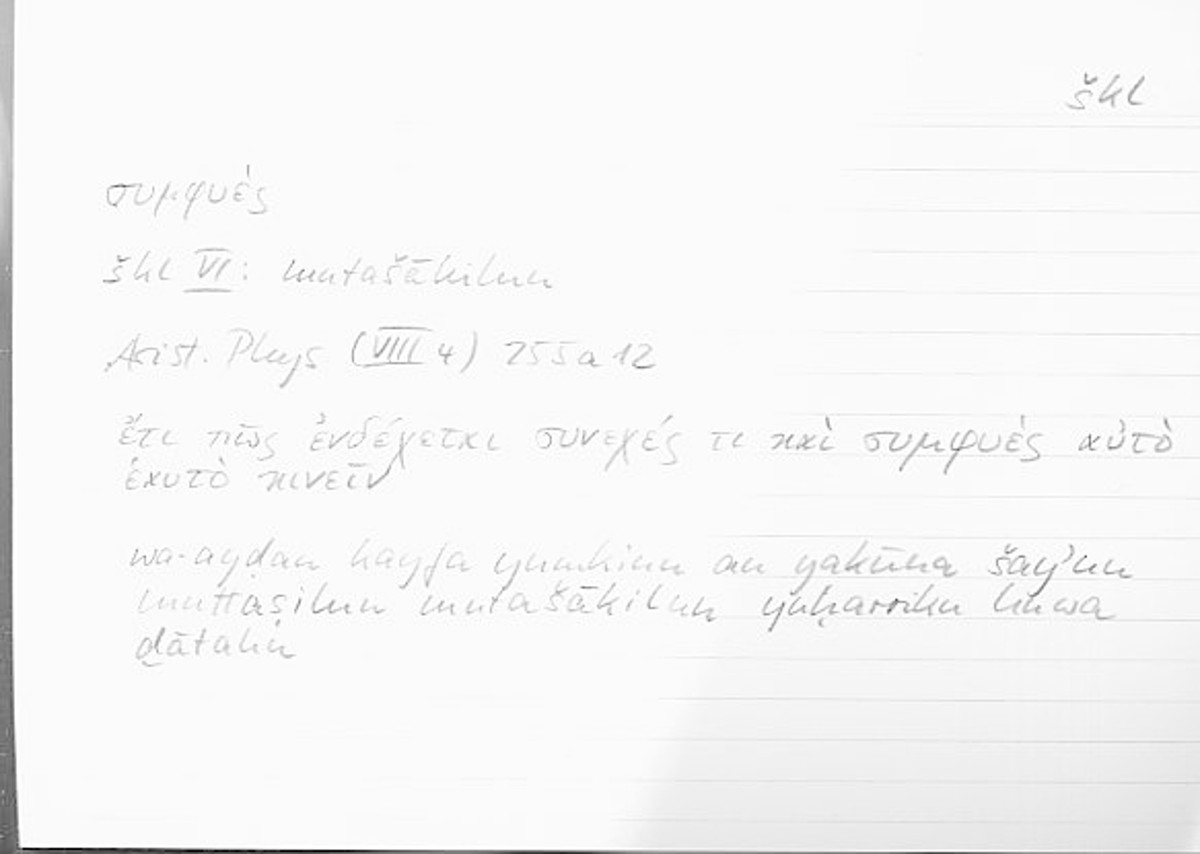 škl
συμφυές
škl VI: mutašākilun
Arist. Phys (VIII 4) 255a12
ἔτι πῶς ἐνδέχεται συνεχές τι καὶ συμφυές αὐτὸ
ἑαυτὸ κινεῖν
wa-ayḍan kayfa yumkinu an yakūna šayʾun
muttaṣilun mutašākilun yuḥarriku huwa
ḏātahū